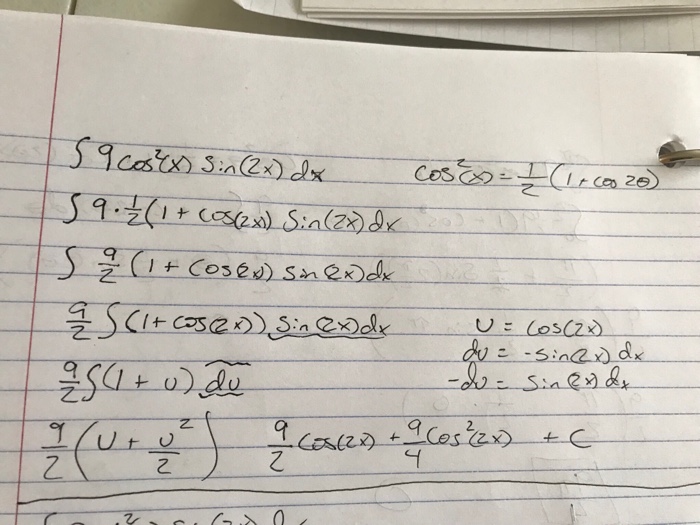 ∫ 9cos²(x) sin(2x) dx    cos²(x) = 1/2 (1 + cos 2θ)
∫ 9·1/2(1 + cos(2x) sin(2x) dx
∫ 9/2 (1 + cos(2x)) sin(2x) dx
9/2 ∫(1 + cos(2x)) sin(2x) dx    u = cos(2x)
du = -sin(2x) dx
9/2 ∫(1 + u) du    -du = sin(2x) dx
9/2 (u + u²/2)    9/2 cos(2x) + 9/4 cos²(2x) + C